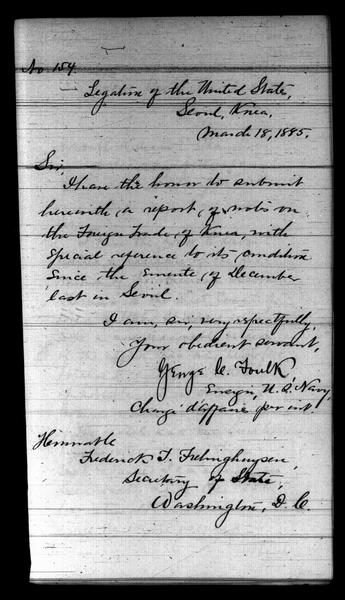 No. 154.
Legation of the United States,
Seoul, Korea,
March 18, 1885.
Sir;
I have the honor to submit
herewith, a report, of notes on
the Foreign Trade, of Korea, with
special reference to its condition
since the emeute, of December
last in Seoul.
I am, sir, very respectfully,
Your obedient servant,
George C. Foulk,
Ensign, U.S. Navy,
Chargé d'affaires per int.
Honorable
Frederick T. Frelinghuysen,
Secretary of State,
Washington, D.C.